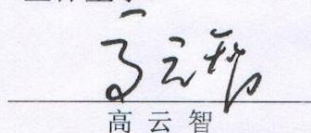 高云智
高云智